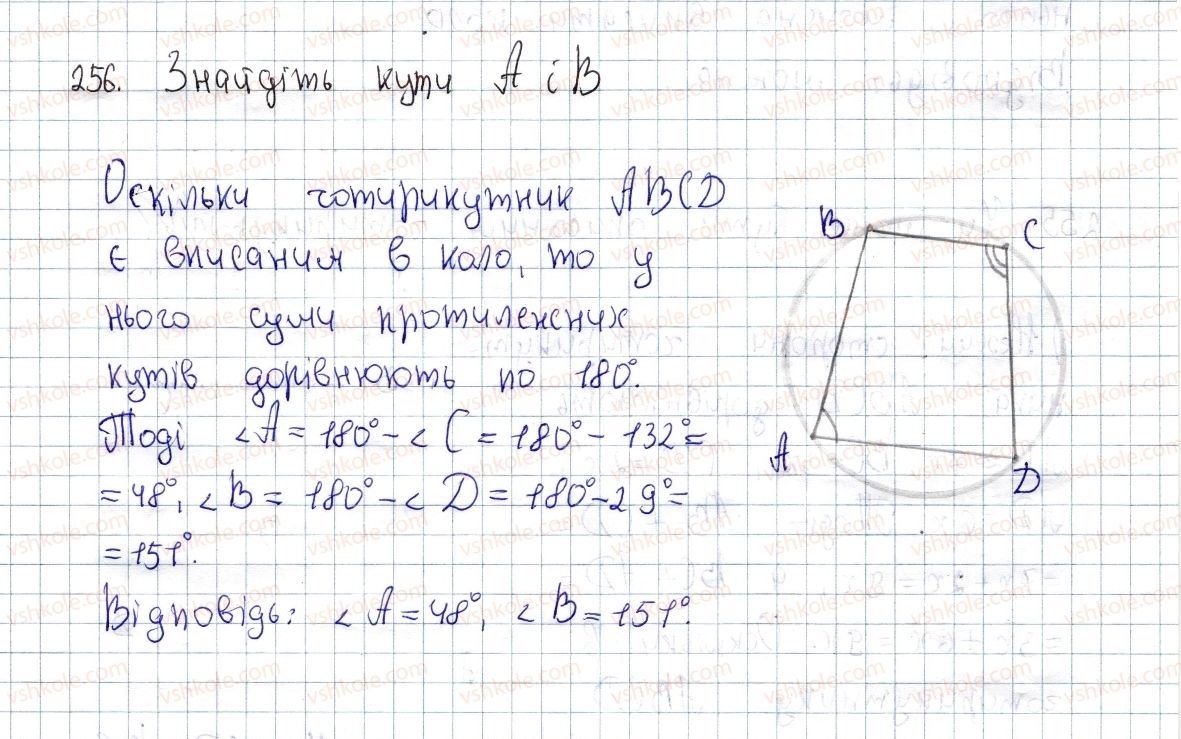 256. Знайдіть кути A і B
Оскільки чотирикутник ABCD
є вписаним в коло, то у
нього суми протилежних
кутів дорівнюють по 180°.
Тоді ∠A = 180° - ∠C = 180° - 132° =
= 48°, ∠B = 180° - ∠D = 180° - 29° =
= 151°.
Відповідь: ∠A = 48°, ∠B = 151°.
B
C
A
D
vshkole.com